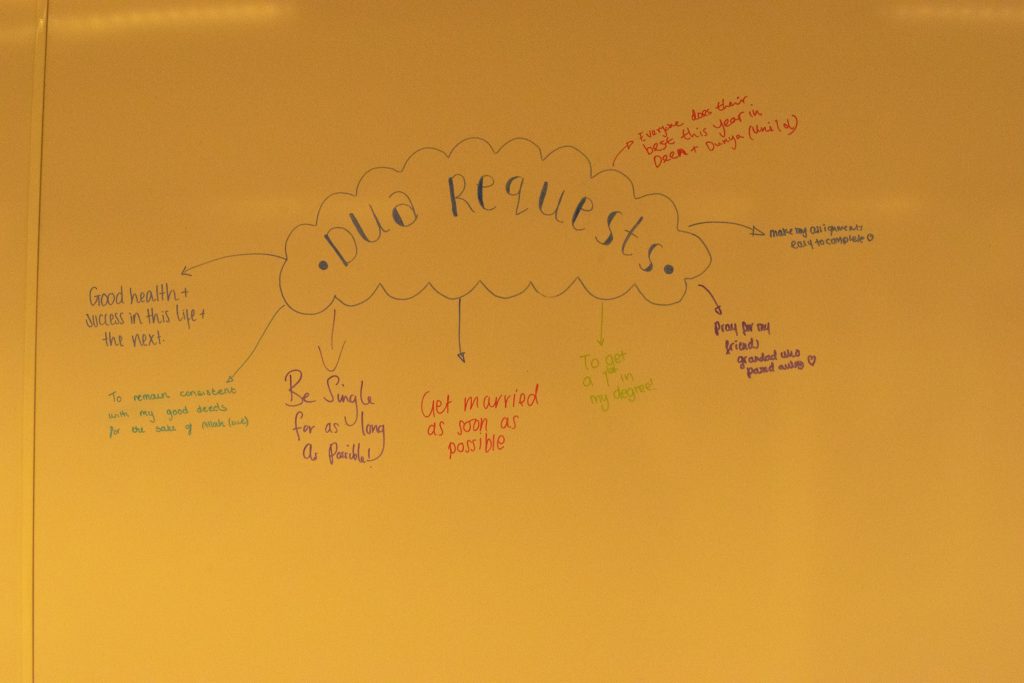 • DUA ReQuesTs •
Everyone does their
best this year in
Deen + Dunya (Uni lol)
make my assignments
easy to complete
Good health +
success in this life +
the next.
Pray for my
friends
grandad who
passed away ♡
To remain consistent
with my good deeds
for the sake of Allah (swt)
Be Single
for as long
as Possible!
Get married
as soon as
possible
To get
a 1st in
my degree!